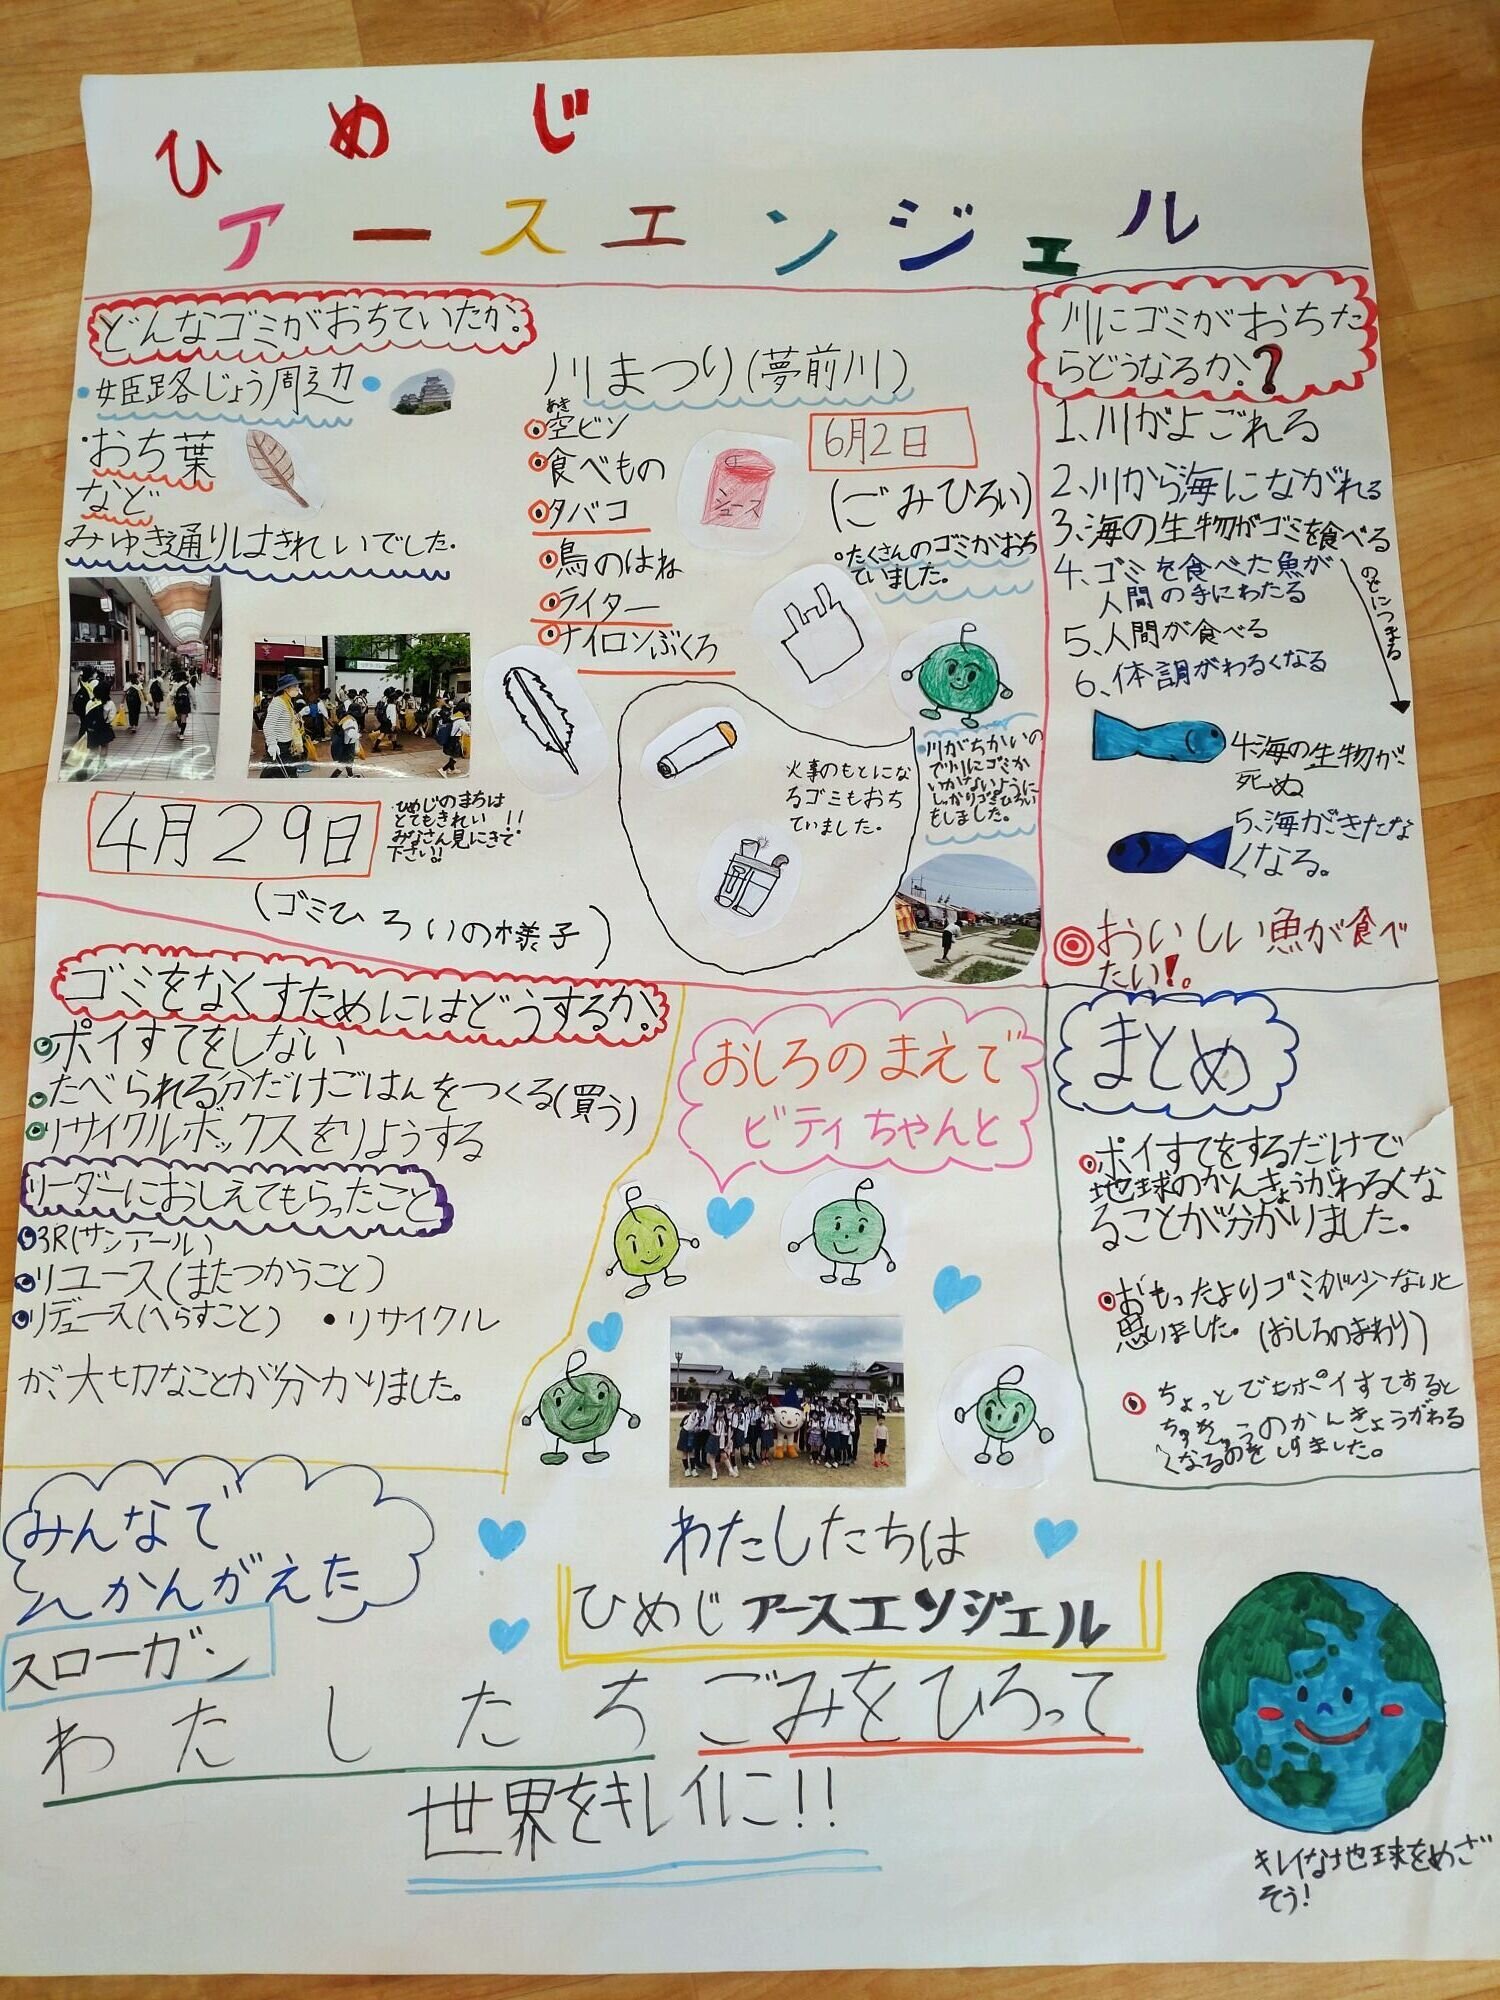 ひめじ
アースエンジェル
どんなゴミがおちていたか。
姫路じょう周辺
・おち葉
など
みゆき通りはきれいでした。
4月29日
ひめじのまちは
とてもきれい!!
みなさん見にきて
下さい!!
(ゴミひろいの様子)
川まつり(夢前川)
あき
空ビン
食べもの
タバコ
鳥のはね
ライター
ナイロンぶくろ
ジュース
6月2日
(ごみひろい)
たくさんのゴミがおち
ていました。
火事のもとにな
るゴミもおち
ていました。
川がちかいの
で川にゴミが
いかないように
しっかりゴミひろい
をしました。
川にゴミがおちた
らどうなるか?
1、川がよごれる
2、川から海にながれる
3、海の生物がゴミを食べる
4、ゴミを食べた魚が
人間の手にわたる
5、人間が食べる
6、体調がわるくなる
のどにつまる
4、海の生物が
死ぬ
5、海がきたな
くなる。
おいしい魚が食べ
たい!。
ゴミをなくすためにはどうするか。
ポイすてをしない
たべられる分だけごはんをつくる(買う)
リサイクルボックスをりようする
リーダーにおしえてもらったこと
3R(サンアール)
リユース(またつかうこと)
リデュース(へらすこと) ・リサイクル
が、大切なことが分かりました。
おしろのまえで
ビティちゃんと
まとめ
ポイすてをするだけで
地球のかんきょうがわるくな
ることが分かりました。
おもったよりゴミが少ないと
思いました。(おしろのまわり)
ちょっとでもポイすてすると
ちきゅうのかんきょうがわる
くなるのをしりました。
みんなで
かんがえた
スローガン
わたしたちは
ひめじアースエンジェル
わたしたちごみをひろって
世界をキレイに!!
キレイな地球をめざ
そう!